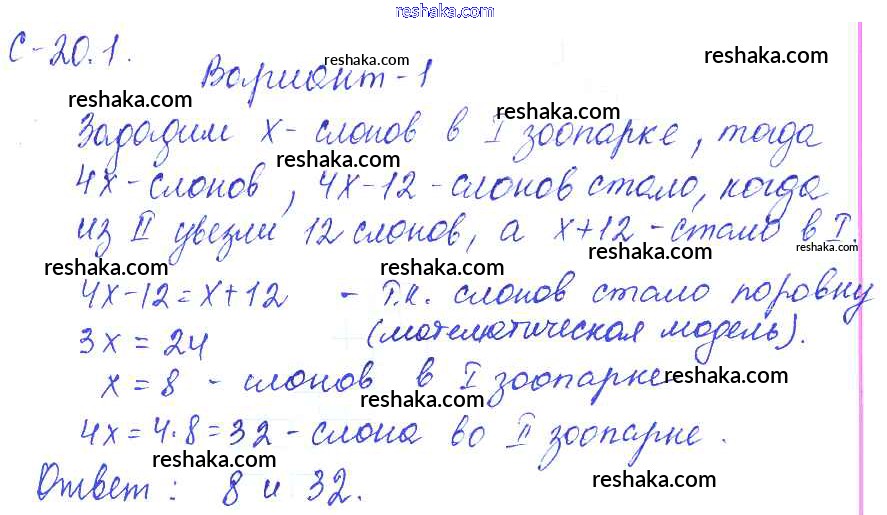 reshaka.com
С-20.1.
reshaka.com
reshaka.com
Вариант-1
reshaka.com
reshaka.com
Зададим х-слонов в I зоопарке, тогда
reshaka.com
4х-слонов, 4х-12-слонов стало, когда
из II увезли 12 слонов, а х+12-стало в I.
reshaka.com
reshaka.com
reshaka.com
4х-12=х+12 - т.к. слонов стало поровну
(математическая модель).
3х=24
reshaka.com
х=8 - слонов в I зоопарке
reshaka.com
reshaka.com
4х=4·8=32-слона во II зоопарке.
reshaka.com
reshaka.com
Ответ: 8 и 32.